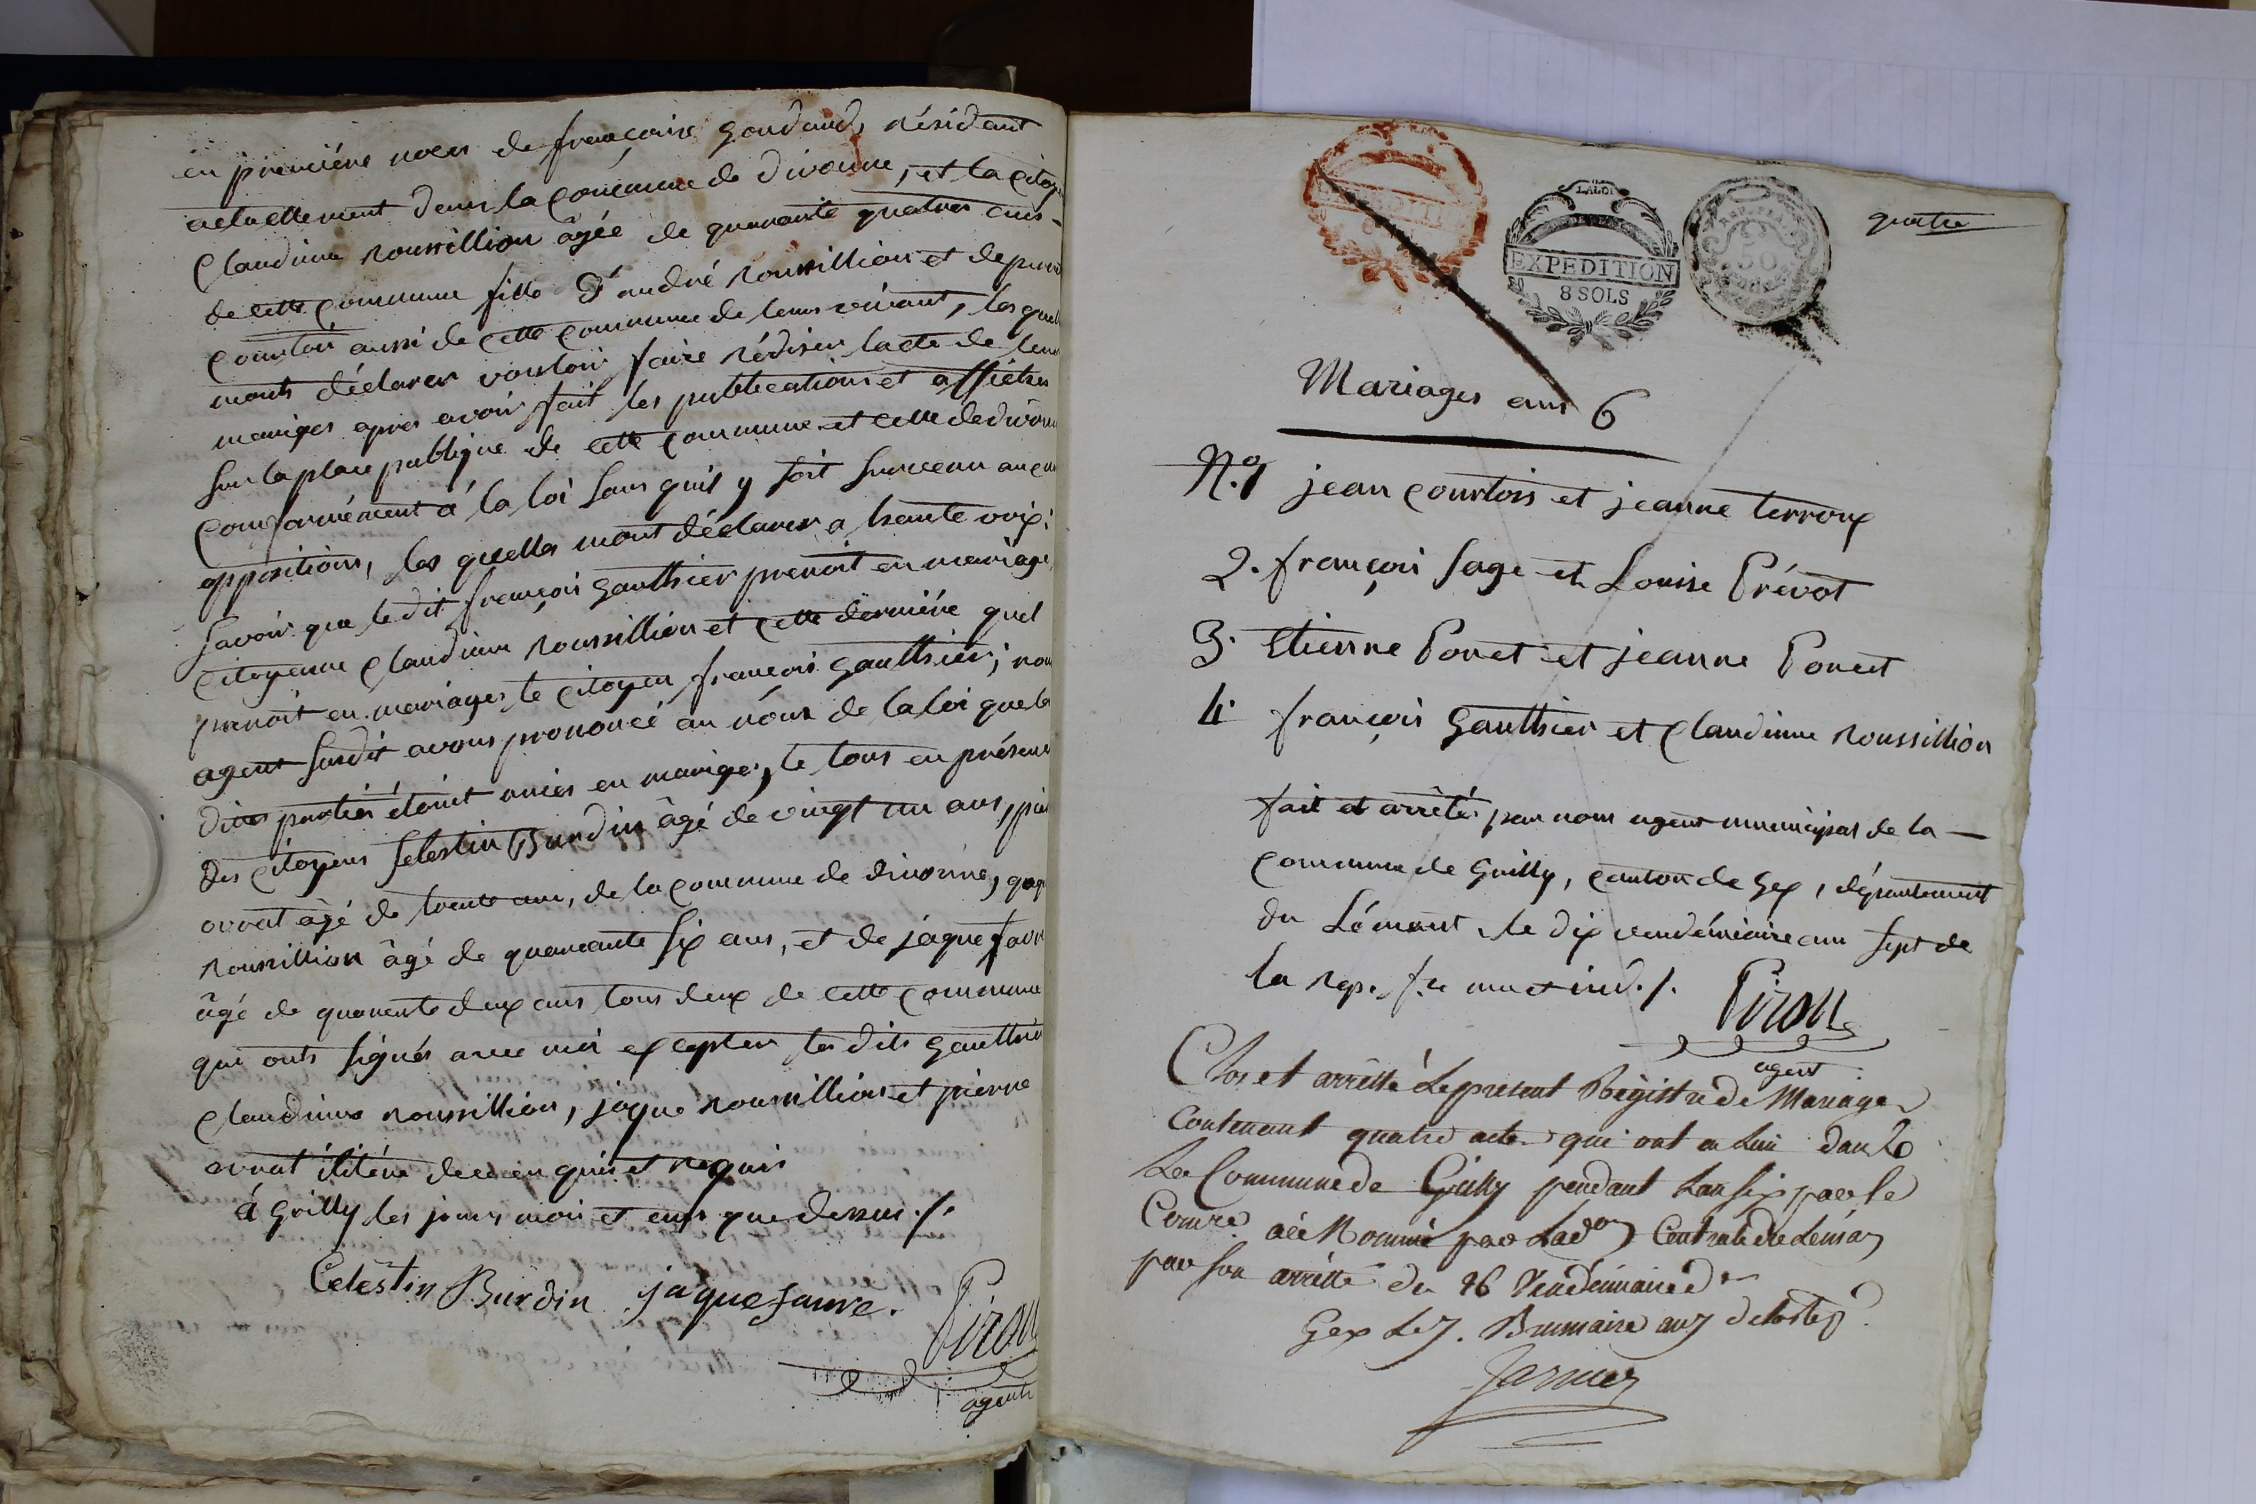 en première noces de françoise goudard, résidant
actuellement dans la commune de divonne, et la citoy
Claudinne roussillion âgée de quarante quatres ans
de cette commune fille d'andré roussillion et de
Courtois aussi de cette commune de leurs vivant, lesquel
monts déclarer vouloir faire rédiser lacte de leur
mariges apres avoir fait les publications et affiches
sur la place publique de cette commune et celle de divonne
conformément à la loi sans quil y soit survenu aucun
oppositions, les quelles mont déclarer a haute voix:
Savoir que le dit françois gauthier prenoit en mariage
citoyenne Claudinne roussillion et cette dernière quel
prenoit en mariages le citoyen françois gauthier; nous
agent susdit avons prononcé au nom de la loi que les
dites parties étoint unies en mariges, le tous en présence
des citoyens Selestin Burdin âgé de vingt un ans, pier
orvat âgé de trente ans, de la commune de divonne, jaqu
roussillion âgé de quarante six ans, et de jaque favr
âgé de quarente deux ans tous deux de cette commune
qui onts signés avec moi excepter les dits gauthier
Claudinne roussillion, jaque roussillion et pierre
orvat ilitéré de ce en quis et requis
à Grilly les jours mois et ans que dessus ./.
Celestin Burdin jaque favre.
Pirou
agent
quatre
LA LOI
EXPEDITION
8 SOLS
REP. FRA.
50
Mariages ans 6
N.º 1 jean courtois et jeanne terroux
2. françois Sage et Louise Prévot
3. Etienne Ponet et jeanne Poncet
4. françois gauthier et Claudinne roussillion
fait et arrêté par nous agent municipal de la
commune de Grilly, canton de Gex, département
du Lémant, le dix vendémiaire ans sept de
la rep. f.se une et ind. /.
Pirou
agent
Clos et arrêtté Le present Régistre de Mariage
Contenant quatre actes qui ont eu Lieu dans
La Commune de Grilly pendant Lan six par le
Comre. aée Nommé par Ladon Centrale du Léman
par son arrêtté du 26 Vendémiaire dr
Gex Le 7. Brumaire an 7 de la Rep